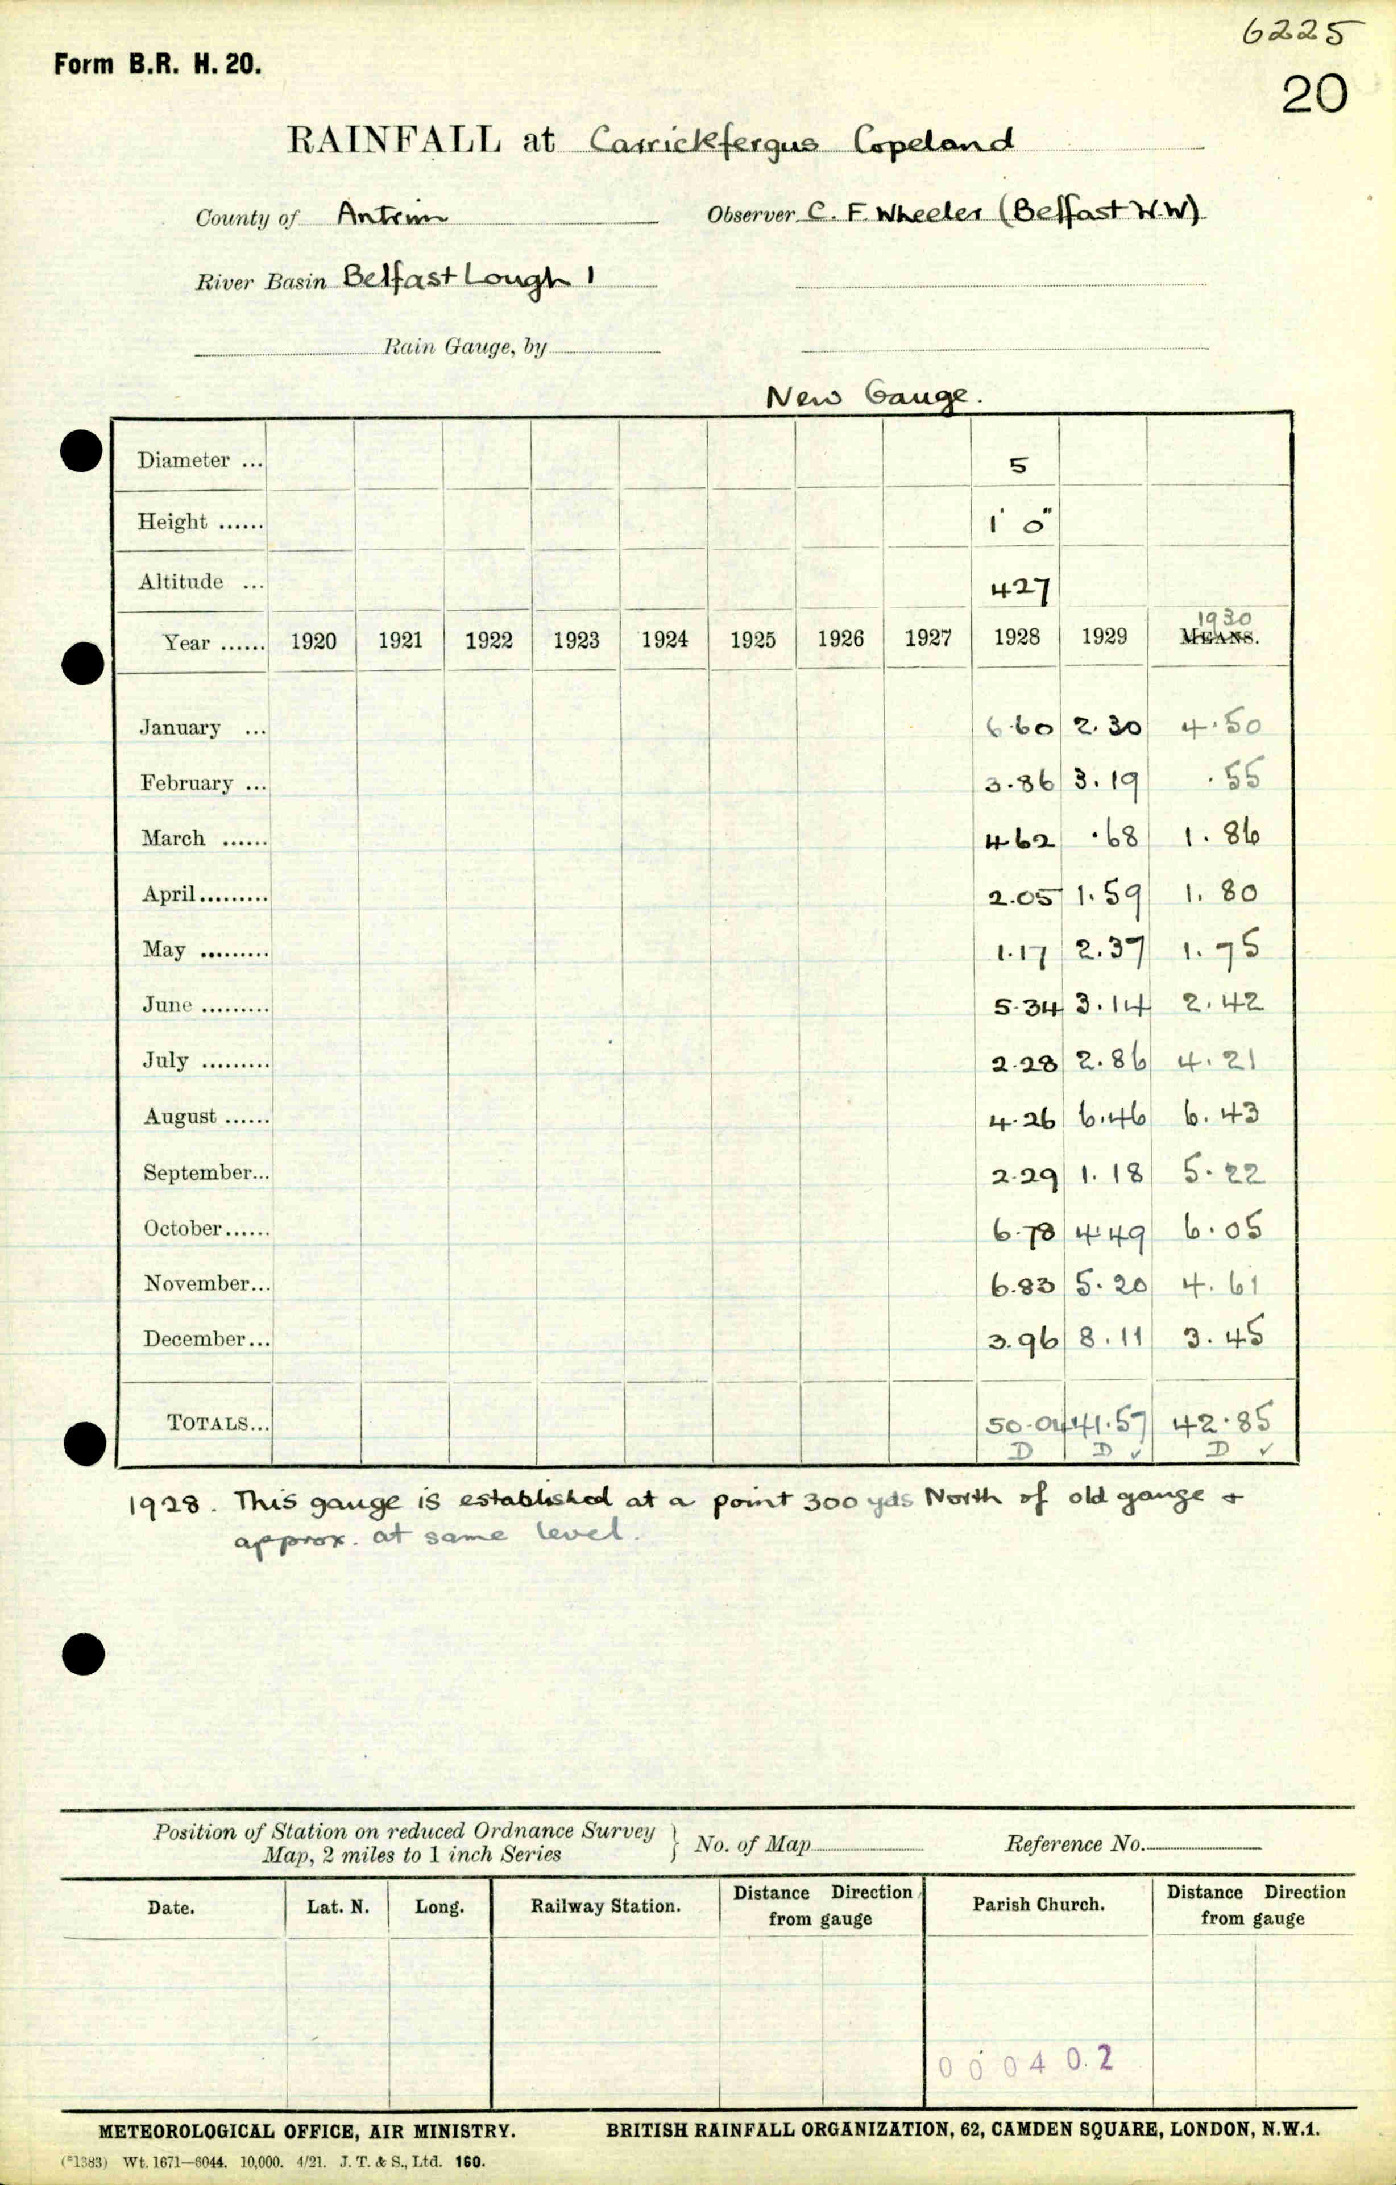 6225
Form B.R. H. 20.
20
RAINFALL at Carrickfergus Copeland
County of Antrim Observer C. F. Wheeler (Belfast W.W)
River Basin Belfast Lough 1
Rain Gauge, by
New Gauge.
Diameter ... 5
Height ...... 1' 0"
Altitude ... 427
1930
Year ...... 1920 1921 1922 1923 1924 1925 1926 1927 1928 1929 MEANS.
January ... 6.60 2.30 4.50
February ... 3.86 3.19 .55
March ...... 4.62 .68 1.86
April ......... 2.05 1.59 1.80
May ......... 1.17 2.37 1.75
June ......... 5.34 3.14 2.42
July ......... 2.28 2.86 4.21
August ...... 4.26 6.46 6.43
September... 2.29 1.18 5.22
October...... 6.78 4.49 6.05
November... 6.83 5.20 4.61
December... 3.96 8.11 3.45
TOTALS... 50.04 41.57 42.85
D D ✓ D ✓
1928. This gauge is established at a point 300 yds North of old gauge +
approx. at same level.
Position of Station on reduced Ordnance Survey
Map, 2 miles to 1 inch Series } No. of Map Reference No.
Date. Lat. N. Long. Railway Station. Distance Direction from gauge Parish Church. Distance Direction from gauge
000402
METEOROLOGICAL OFFICE, AIR MINISTRY. BRITISH RAINFALL ORGANIZATION, 62, CAMDEN SQUARE, LONDON, N.W.1.
(*1383) Wt. 1671—6044. 10,000. 4/21. J. T. & S., Ltd. 160.